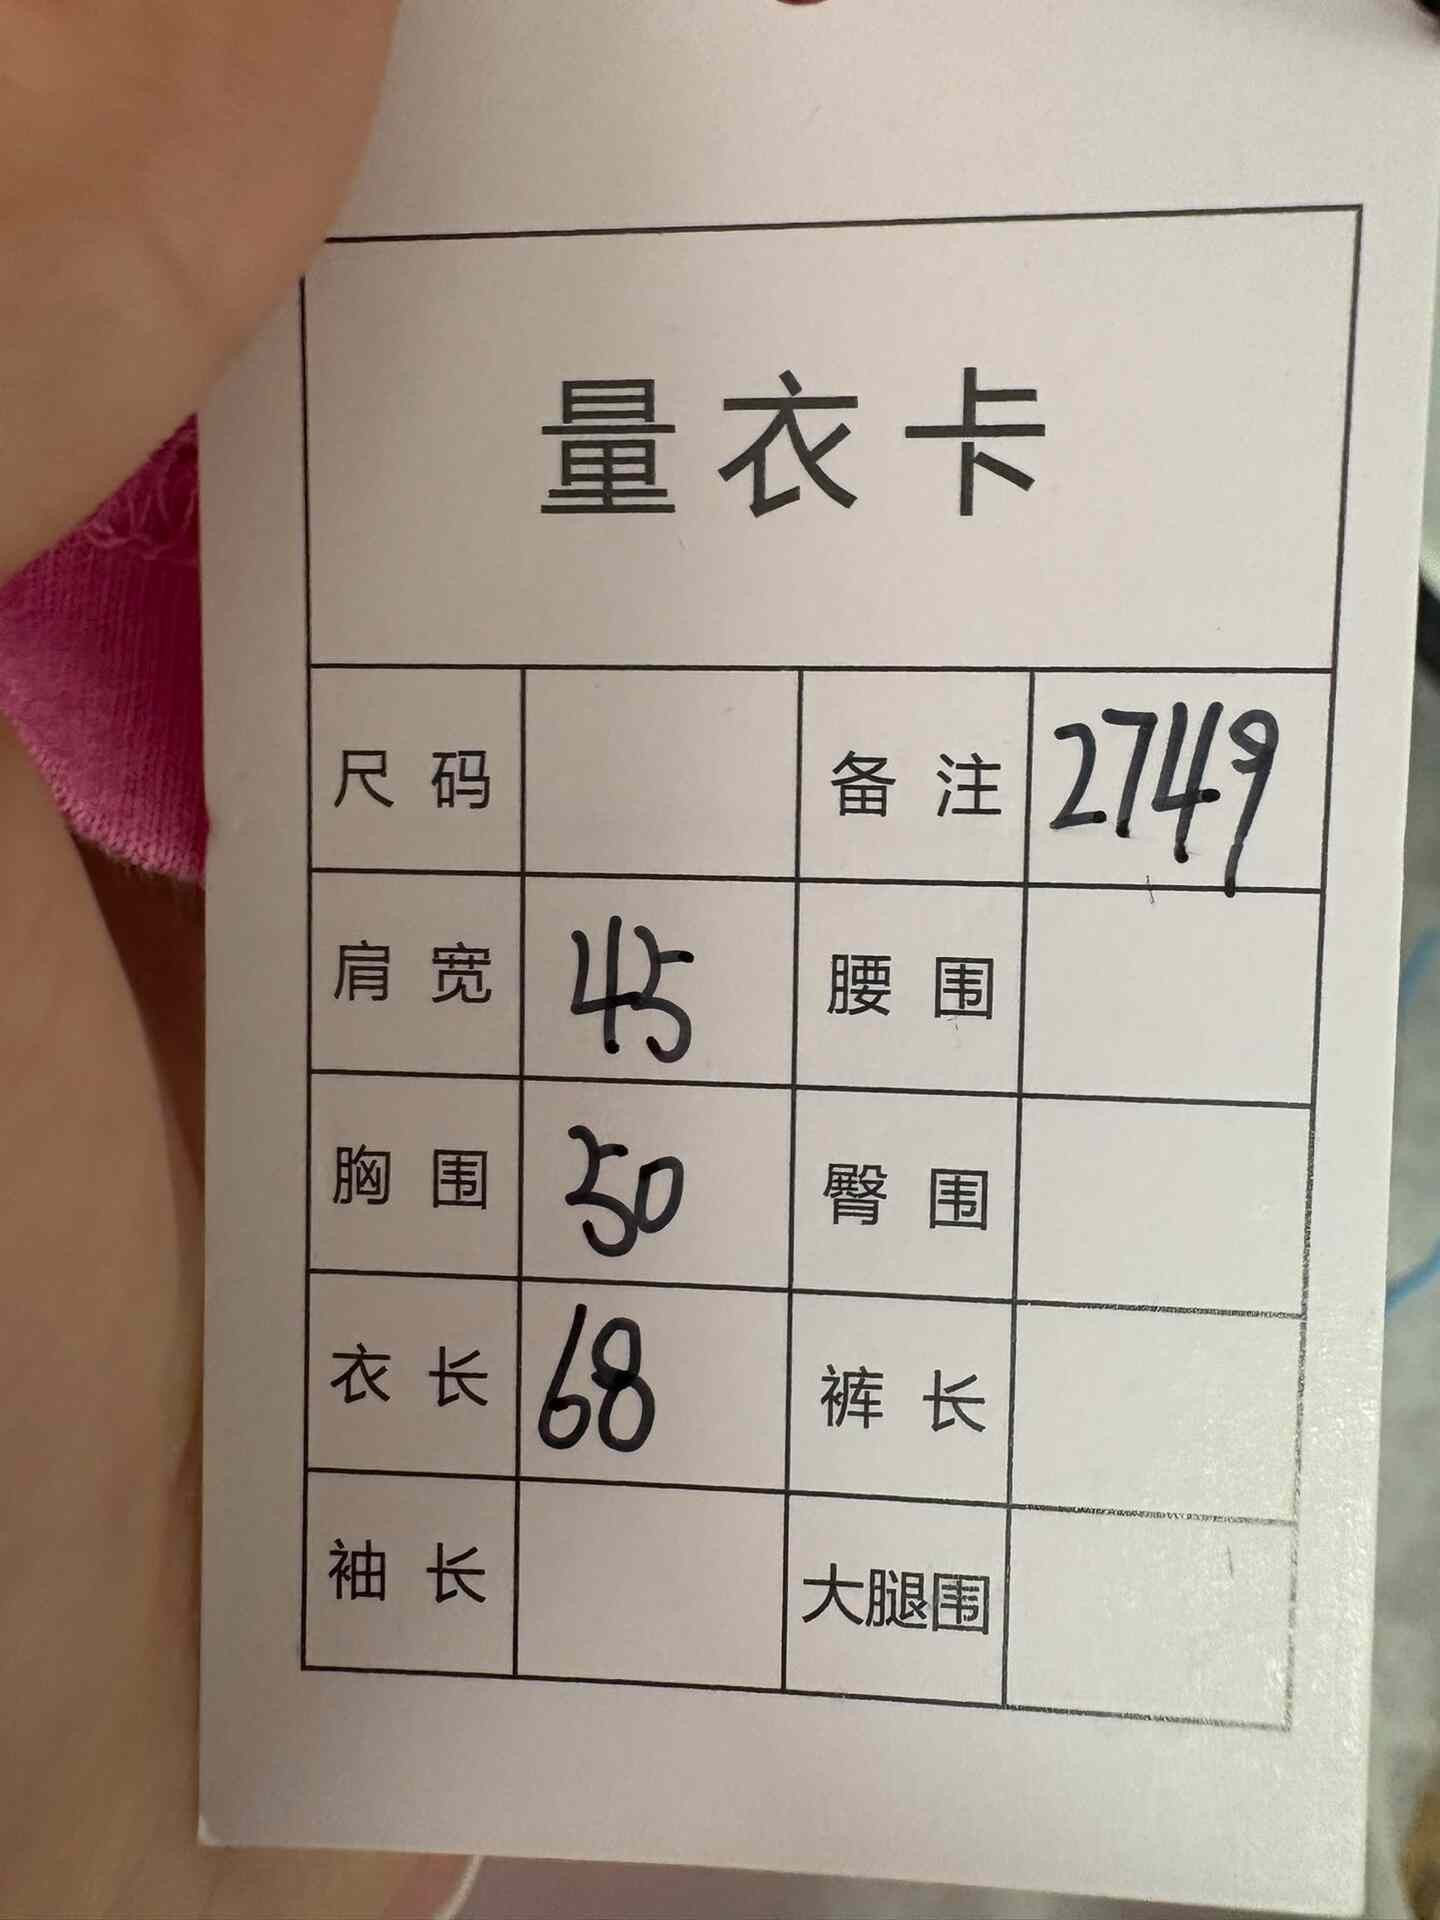 量衣卡
尺码 备注 2749
肩宽 45 腰围
胸围 50 臀围
衣长 68 裤长
袖长 大腿围